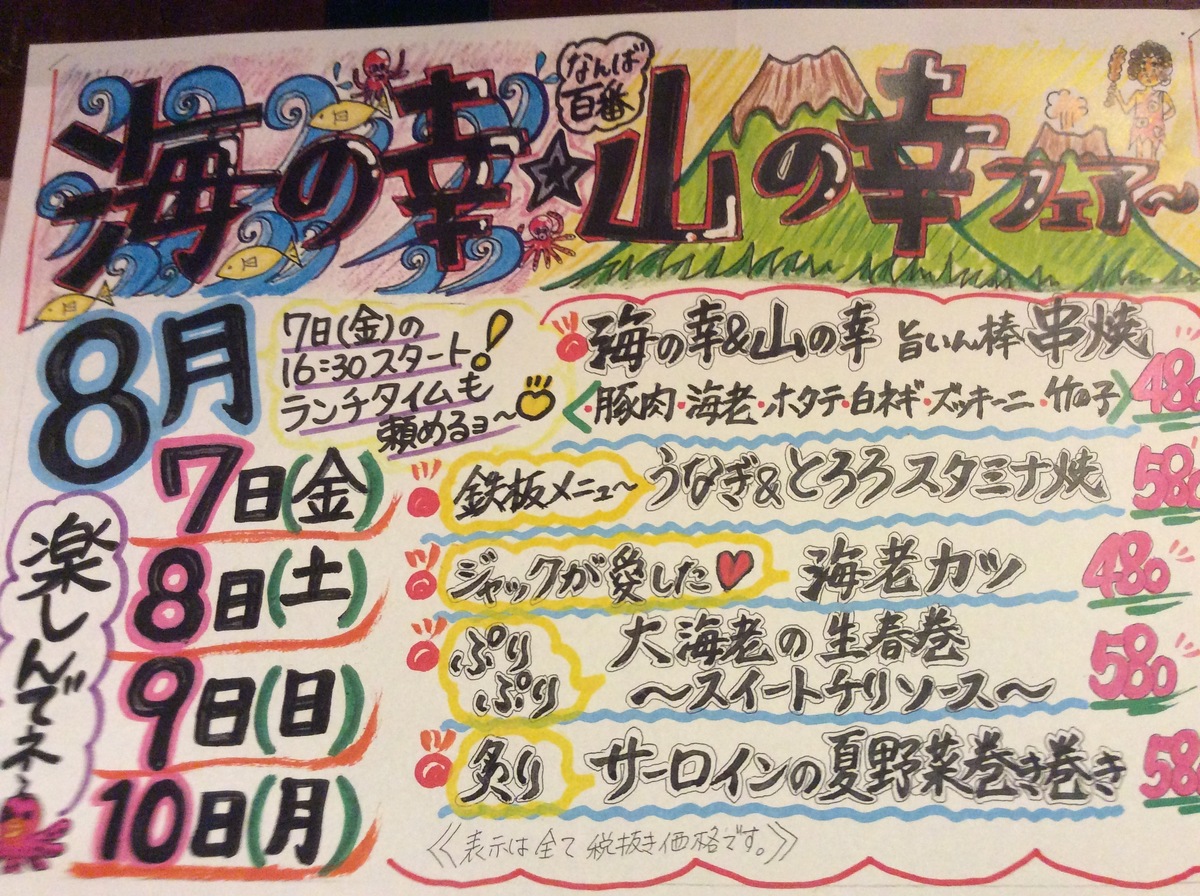 なんば
百番
海の幸★山の幸フェアー〜
8月
7日(金)の
16:30スタート!
ランチタイムも
頼めるョ〜
7日(金)
8日(土)
9日(日)
10日(月)
楽しんでネ〜
海の幸&山の幸 旨いん棒 串焼
〈・豚肉・海老・ホタテ・白ネギ・ズッキーニ・竹の子〉 48
鉄板メニュ〜 うなぎ&とろろスタミナ焼 58
ジャックが愛した♥ 海老カツ 480
ぷり
ぷり
大海老の生春巻
〜スイートチリソース〜 580
炙り サーロインの夏野菜巻き巻き 58
《表示は全て税抜き価格です。》